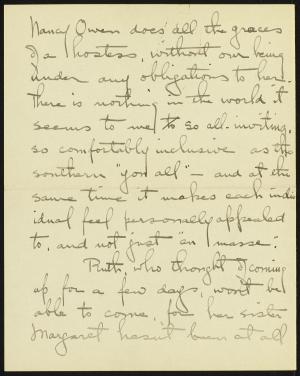 Nancy Owen does all the graces
of a hostess, without our being
under any obligations to her.
There is nothing in the world it
seems to me so all-inviting,
so comfortably inclusive as the
southern "you all" – and at the
same time it makes each indiv
idual feel personally appealed
to, and not just "en masse".
Ruth, who thought of coming
up for a few days, won't be
able to come, for her sister
Margaret hasn't been at all